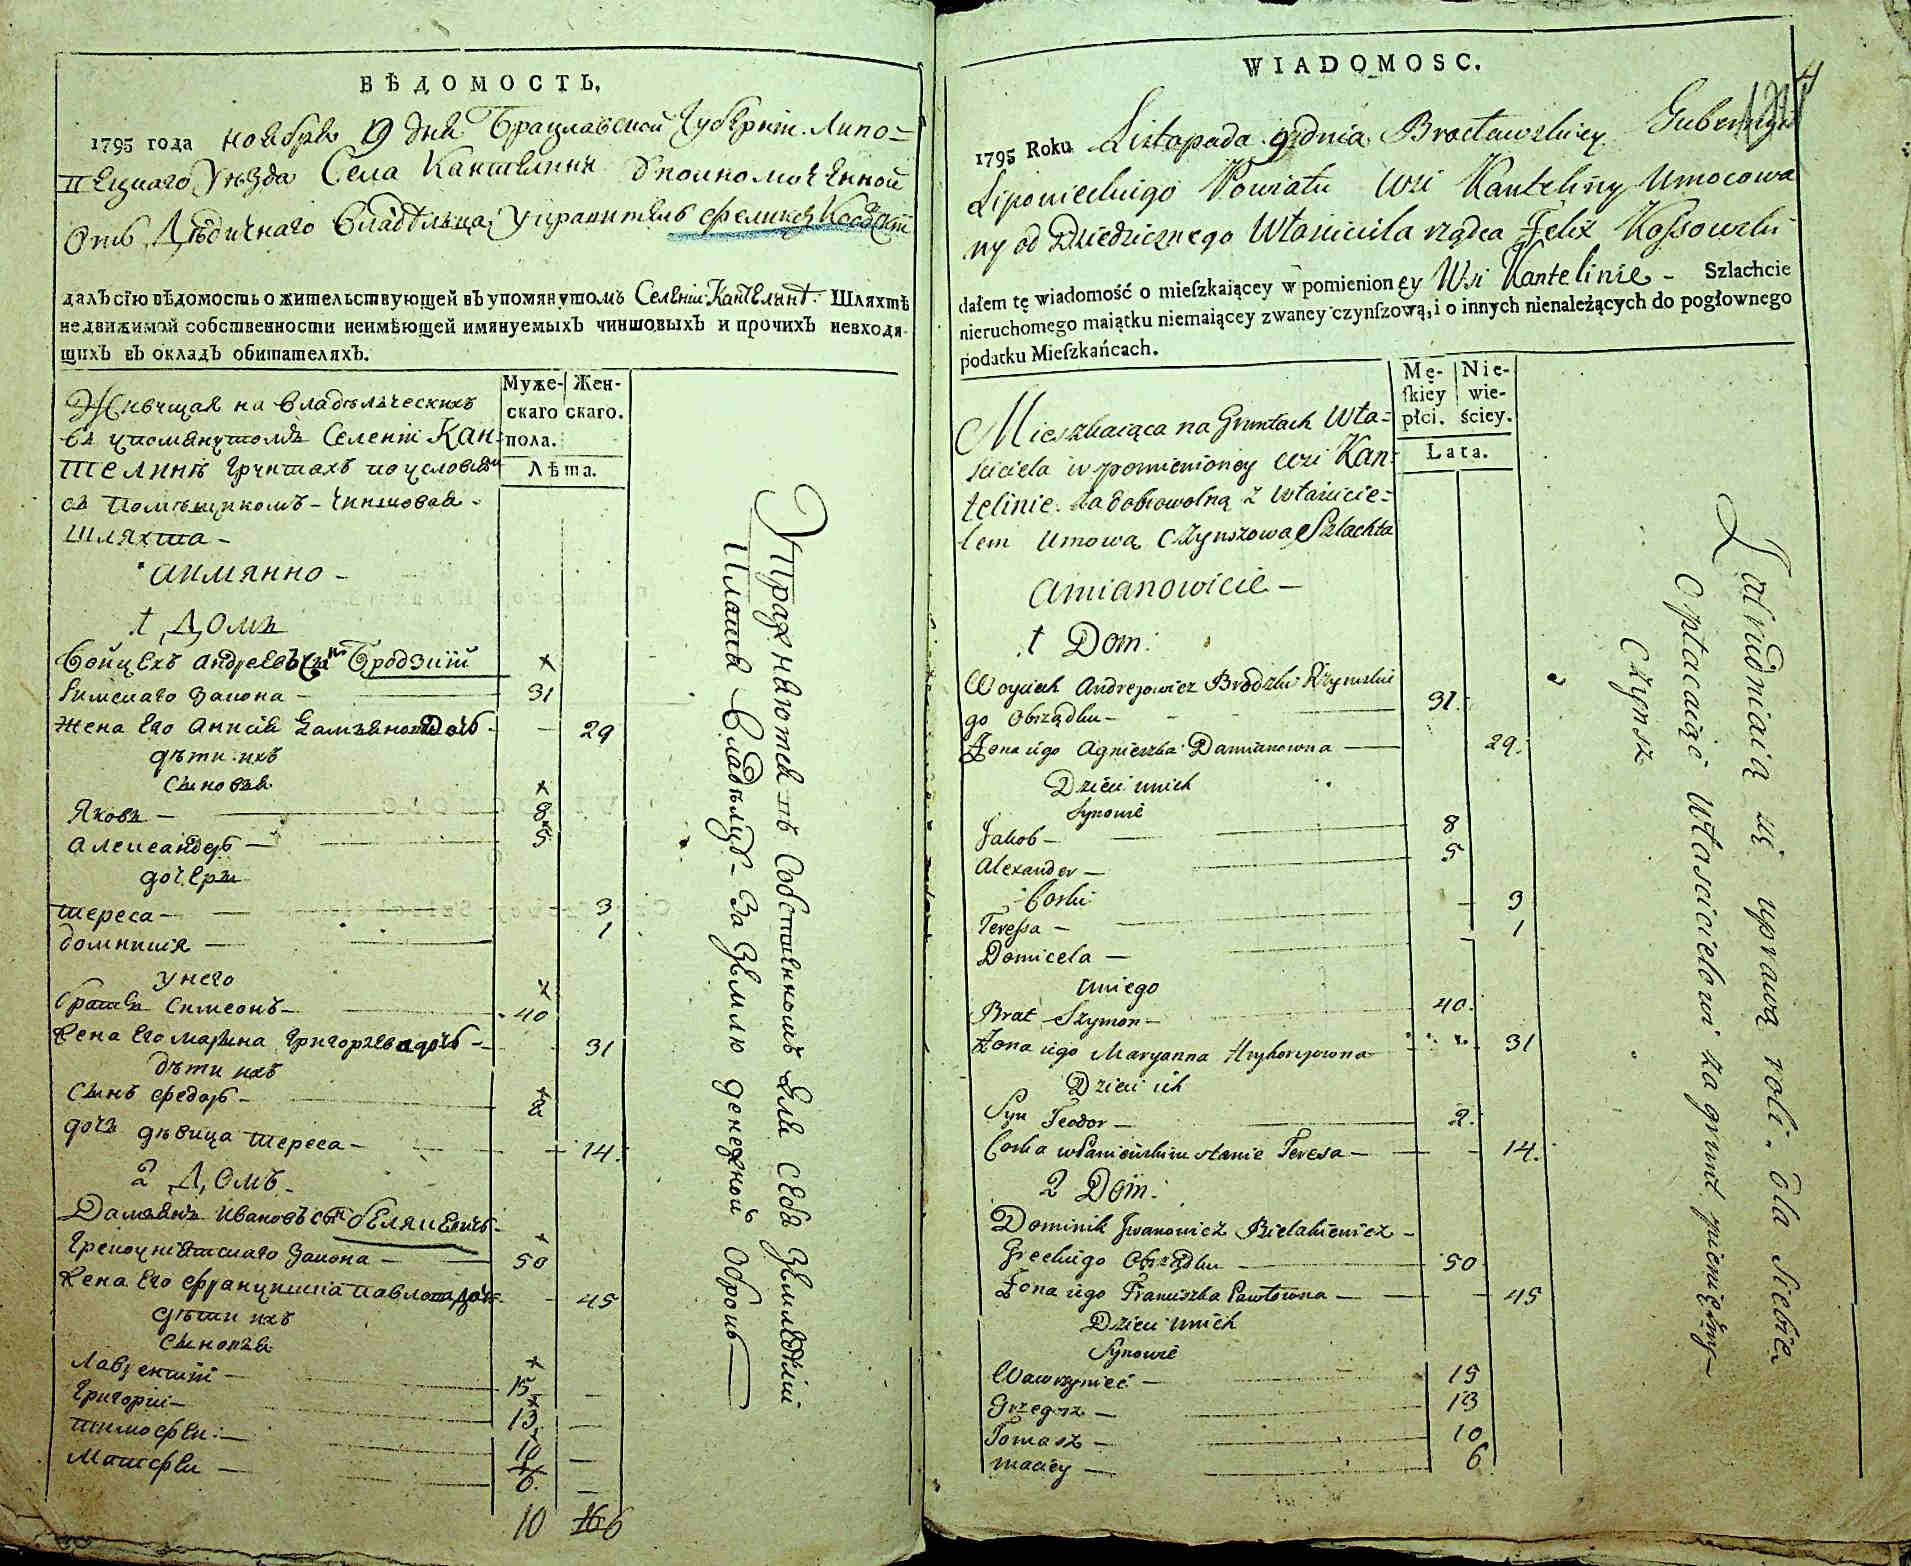 ВѢДОМОСТЬ.
1795 года ноября 9 дня Брацлавской Губерніи Липо=
вецкаго Уѣзда Села Кантелини Уполномоченной
отъ Дѣдичнаго Владѣльца Управитель Феликсъ Косовскій
далъ сію вѣдомость о жительствующей въ упомянутомъ Селеніи Кантелинѣ. Шляхтѣ
недвижимой собственности неимѣющей имянуемыхъ чиншовыхъ и прочихъ невходя-
щихъ въ окладъ обитателяхъ.
Муже- Жен-
скаго скаго.
пола.
Лѣта.
Живущая на Владѣльческихъ
въ упомянутомъ Селеніи Кан-
телинѣ Грунтахъ по условію
съ Помѣщикомъ - Чиншовая -
Шляхта -
аимянно -
1 Домъ
Войцехъ Андреевъ Сынъ Бродзкій
Римскаго Закона - 31
Жена Его Анния Дамьянова Дочь - 29
дѣти ихъ
Сыновья
Яковъ - 8
Александеръ - 5
дочери
Тереса - 3
Домицеля - 1
у него
Братъ Симеонъ - 40
Жена Его Марына Григорьева дочь - 31
дѣти ихъ
Сынъ Федоръ - 2
дочь дѣвица Тереса - 14
2 Домъ -
Дамьянъ Ивановъ Сынъ Белякевичъ -
Грекоуніятскаго Закона - 50
Жена Его Францишка Павлова дочь - 45
дѣти ихъ
Сыновья
Лаврентій - 15
Григорій - 13
Тимофѣи - 10
Матфѣи - 6
10 16 6
Упражняются въ Собственномъ для Себя Земледѣліи
Платя Владѣлцу - За Землю денежной Оброкъ
WIADOMOSC.
1795 Roku Listopada 9 dnia Bracławskiey Gubernyi
Lipowieckiego Powiatu Wsi Kanteliny Umocowa
ny od Dziedzicznego Właściciela rządca Felix Kossowski
dałem tę wiadomość o mieſzkaiącey w pomienioney Wsi Kantelinie - Szlachcie
nieruchomego maiątku niemaiącey zwaney czynſzową, i o innych nienależących do pogłownego
podatku Mieſzkańcach.
Mę- Nie-
ſkiey wie-
płci. ściey.
Lata.
Mieszkaiąca na Gruntach Wła=
sciciela w pomienioney wsi Kan=
telinie. za dobrowolną z Właścicie=
lem Umową Czynszowa Szlachta
Amianowicie -
1 Dom:
Woyciech Andrejowicz Brodzki Rzymskie
go Obrządku - 31.
Żona iego Agnieszka Damianowna - 29.
Dzieci unich
Synowie
Jakob - 8
Alexander - 5
Corki
Teressa - 3
Domicela - 1
uniego
Brat Szymon - 40.
Żona iego Maryanna Hryhorejowna 31
Dzieci ich
Syn Teodor - 2.
Corka w Panieńskim stanie Teresa - 14.
2 Dom:
Dominik Jwanowicz Bielakiewicz -
Greckiego Obrządku - 50
Żona iego Franciszka Pawłowna - 45
Dzieci unich
Synowie
Wawrzyniec - 15
Grzegorz - 13
Tomasz - 10
Maciey - 6
Zatrudniaią się uprawą roli. dla siebie
Opłacaiąc Włascicielowi za grunt pieniężny -
Czynsz